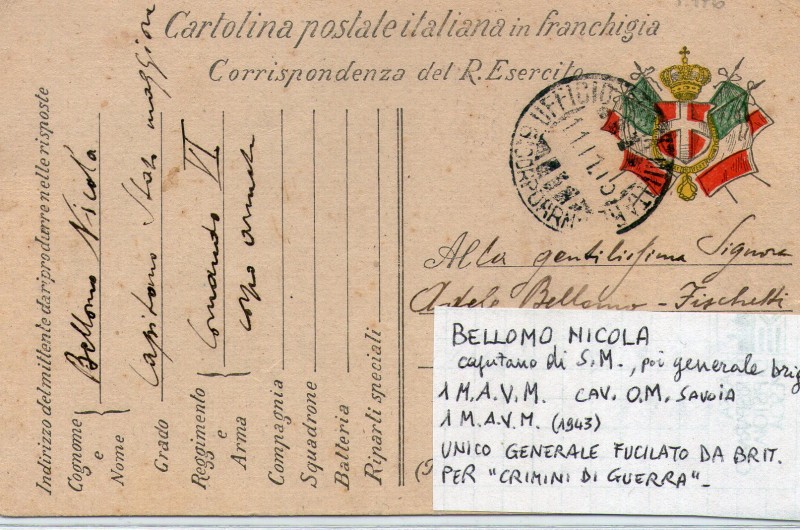 Cartolina postale italiana in franchigia
Corrispondenza del R. Esercito
UFFICIO
Indirizzo del mittente da riprodurre nelle risposte
Cognome e Nome
Bellomo Nicola
Grado
Capitano Stato maggiore
Reggimento e Arma
Comando VI
corpo armata
Compagnia
Squadrone
Batteria
Riparti speciali
Alla gentilissima Signora
Adele Bellomo - Fischetti
BELLOMO NICOLA
capitano di S.M., poi generale brig
1 M.A.V.M. CAV. O.M. SAVOIA
1 M.A.V.M. (1943)
UNICO GENERALE FUCILATO DA BRIT.
PER "CRIMINI DI GUERRA"_